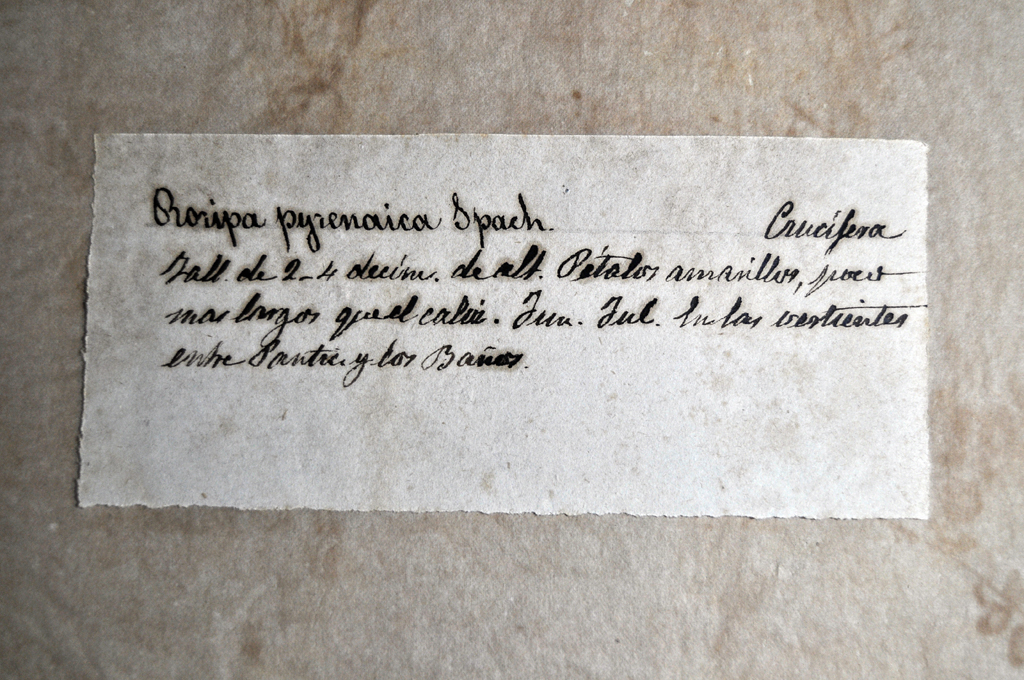 Roripa pyrenaica Spach. Crucífera
Tall. de 2-4 decím. de alt. Pétalos amarillos, poco
mas largos que el caliz. Jun. Jul. En las vertientes
entre y los Baños.